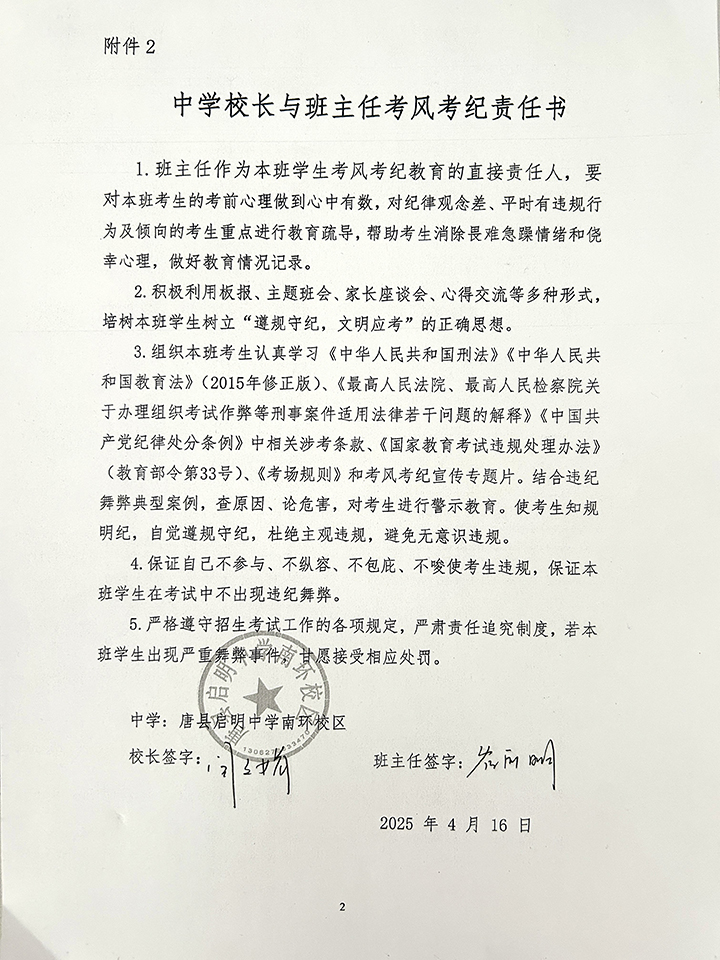 附件2
中学校长与班主任考风考纪责任书
1.班主任作为本班学生考风考纪教育的直接责任人，要
对本班考生的考前心理做到心中有数，对纪律观念差、平时有违规行
为及倾向的考生重点进行教育疏导，帮助考生消除畏难急躁情绪和侥
幸心理，做好教育情况记录。
2.积极利用板报、主题班会、家长座谈会、心得交流等多种形式，
培树本班学生树立“遵规守纪，文明应考”的正确思想。
3.组织本班考生认真学习《中华人民共和国刑法》《中华人民共
和国教育法》（2015年修正版）、《最高人民法院、最高人民检察院关
于办理组织考试作弊等刑事案件适用法律若干问题的解释》《中国共
产党纪律处分条例》中相关涉考条款、《国家教育考试违规处理办法》
（教育部令第33号）、《考场规则》和考风考纪宣传专题片。结合违纪
舞弊典型案例，查原因、论危害，对考生进行警示教育。使考生知规
明纪，自觉遵规守纪，杜绝主观违规，避免无意识违规。
4.保证自己不参与、不纵容、不包庇、不唆使考生违规，保证本
班学生在考试中不出现违纪舞弊。
5.严格遵守招生考试工作的各项规定，严肃责任追究制度，若本
班学生出现严重舞弊事件，甘愿接受相应处罚。
唐县启明中学南环校区
中学：唐县启明中学南环校区
校长签字：
班主任签字：
2025 年 4 月 16 日
2